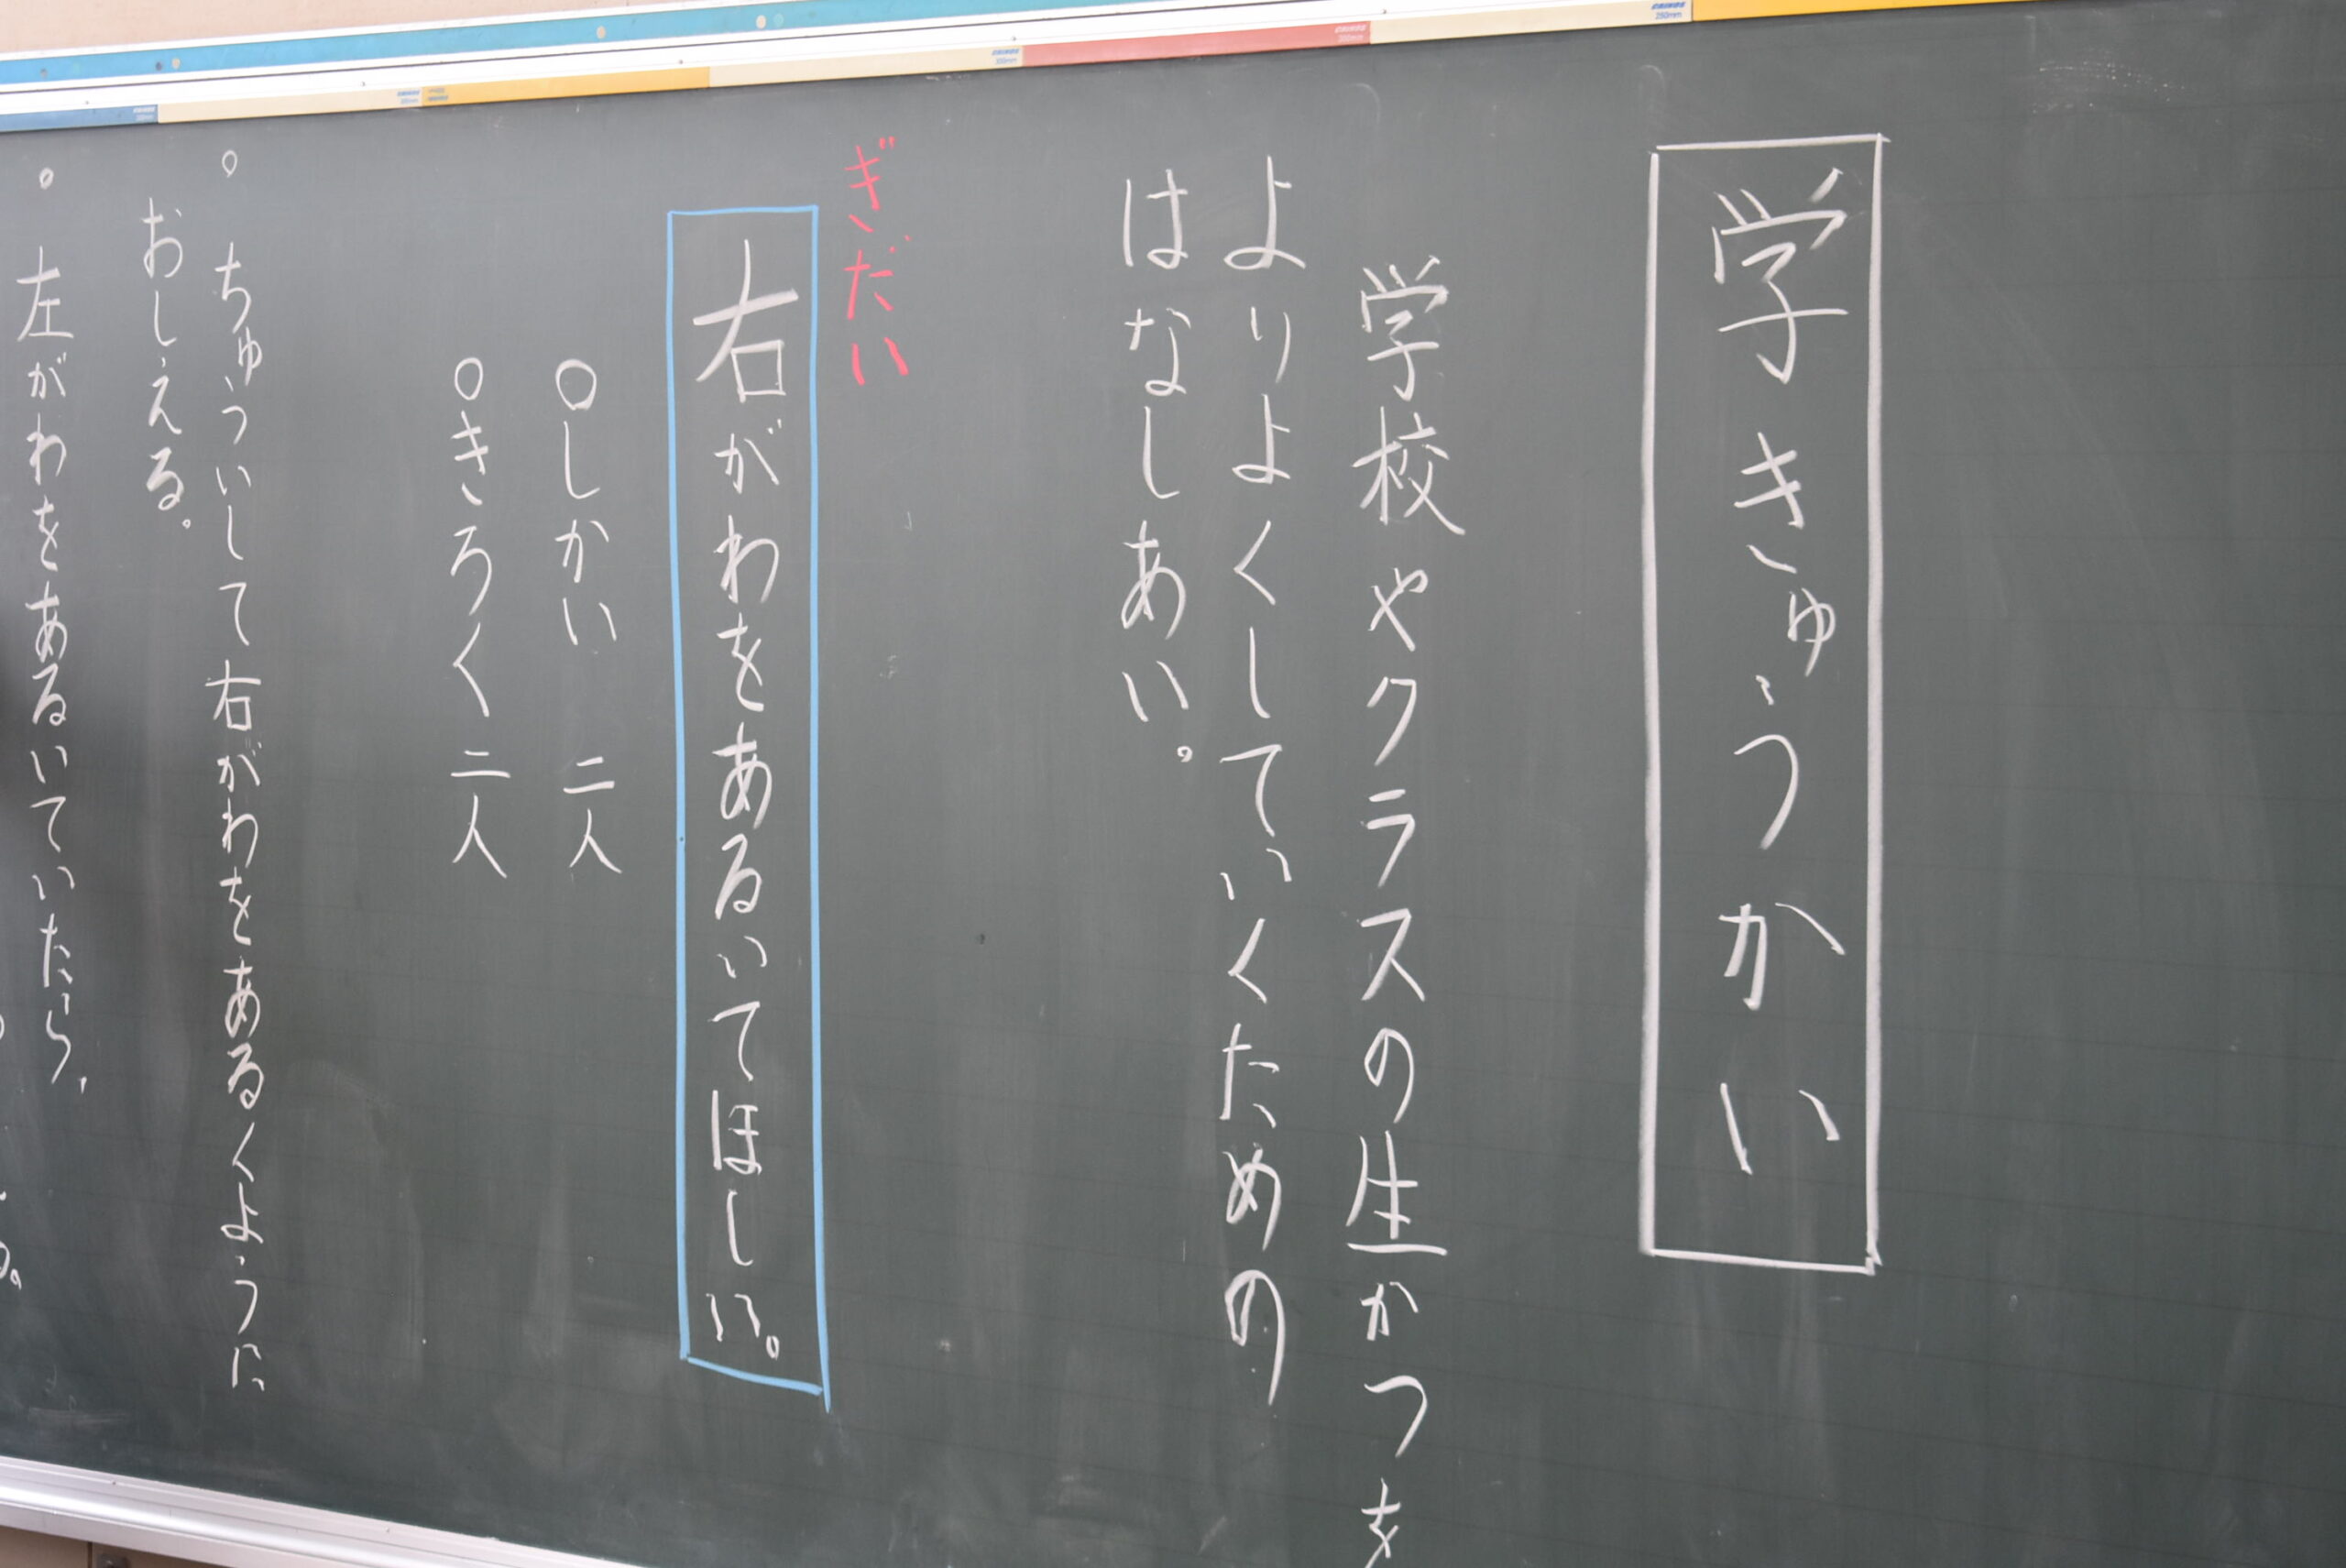 学きゅうかい
学校やクラスの生かつを
よりよくしていくための
はなしあい。
ぎだい
右がわをあるいてほしい。
○しかい 二人
○きろく 二人
○ ちゅういして右がわをあるくように
おしえる。
○ 左がわをあるいていたら、
る。